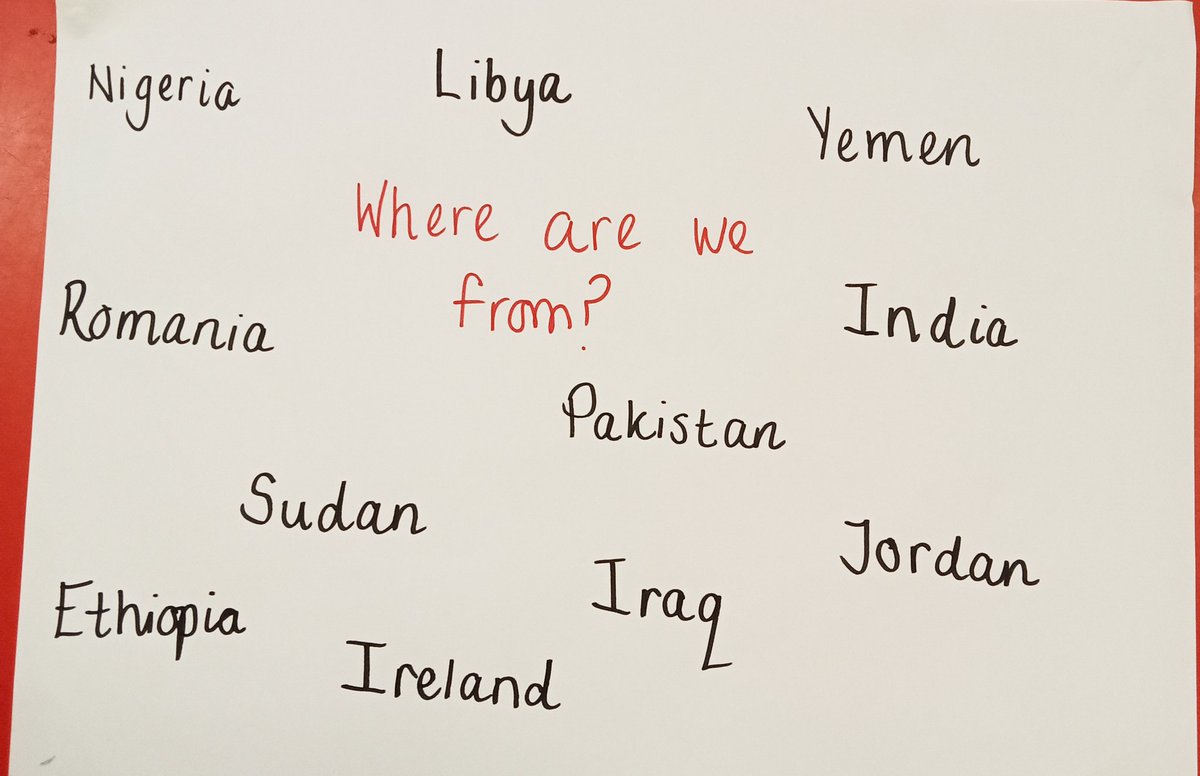 Nigeria
Libya
Yemen
Where are we
from?
Romania
India
Pakistan
Sudan
Jordan
Iraq
Ethiopia
Ireland